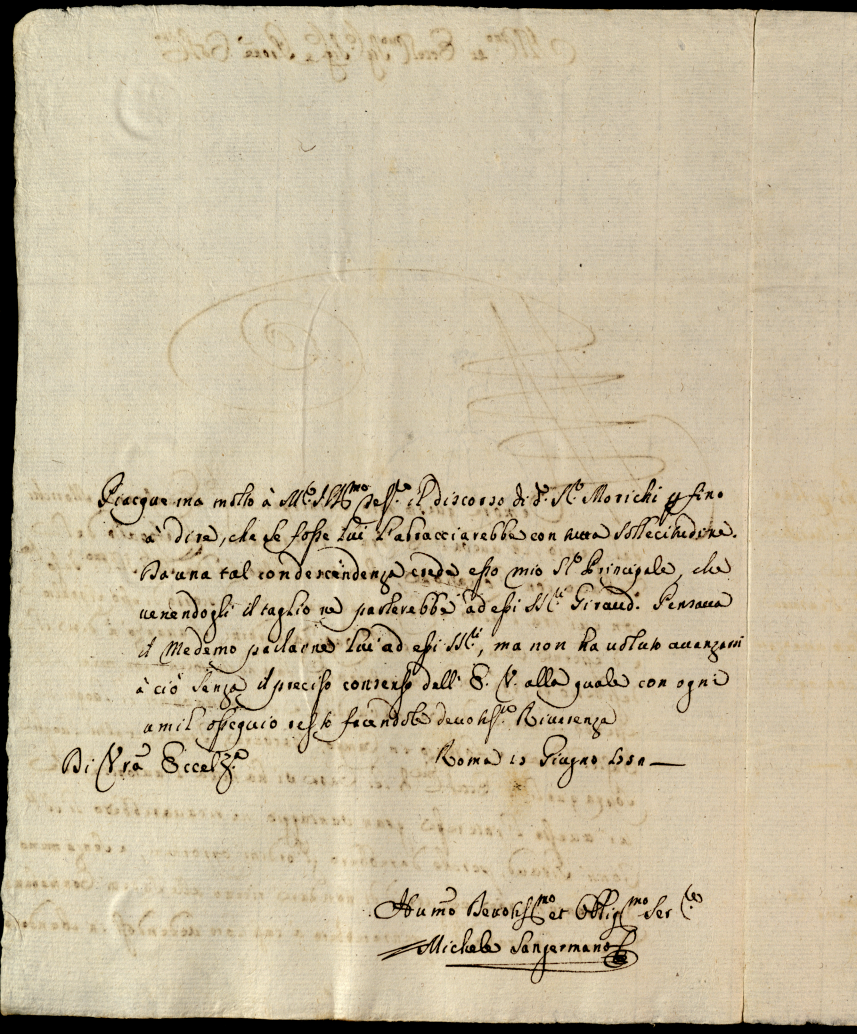 Piacque ma molto à Mr. Illmo il discorso di do. Sr. Morichi e fino
à dire, che se fosse lui l'abracciarebbe con tutta sollecitudine.
Da una tal condescendenza crede esso mio Sr. Principale, che
venendogli il taglio ne parlerebbe ad essi SSri. Giraud. Pensava
il Medemo parlarne lui ad essi SSri, ma non ha voluto avanzarsi
à ciò senza il preciso consenso dell' E. V. alla quale con ogni
umil ossequio resto facendole devotissa. Riverenza
Di Vra Eccelza Roma Giugno
Humo Devotissmo et Obligmo Serre
Michele Sangermano